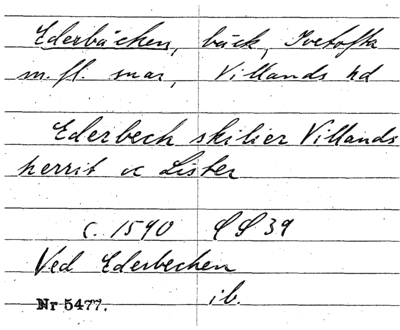 Ederbäcken, bäck, Ivetofta
m. fl. snar, Villands hd
Ederbeck skilier Villands
herrit oc Lister
c. 1590 SS 39
Ved Ederbecken
Nr 5477. ib.